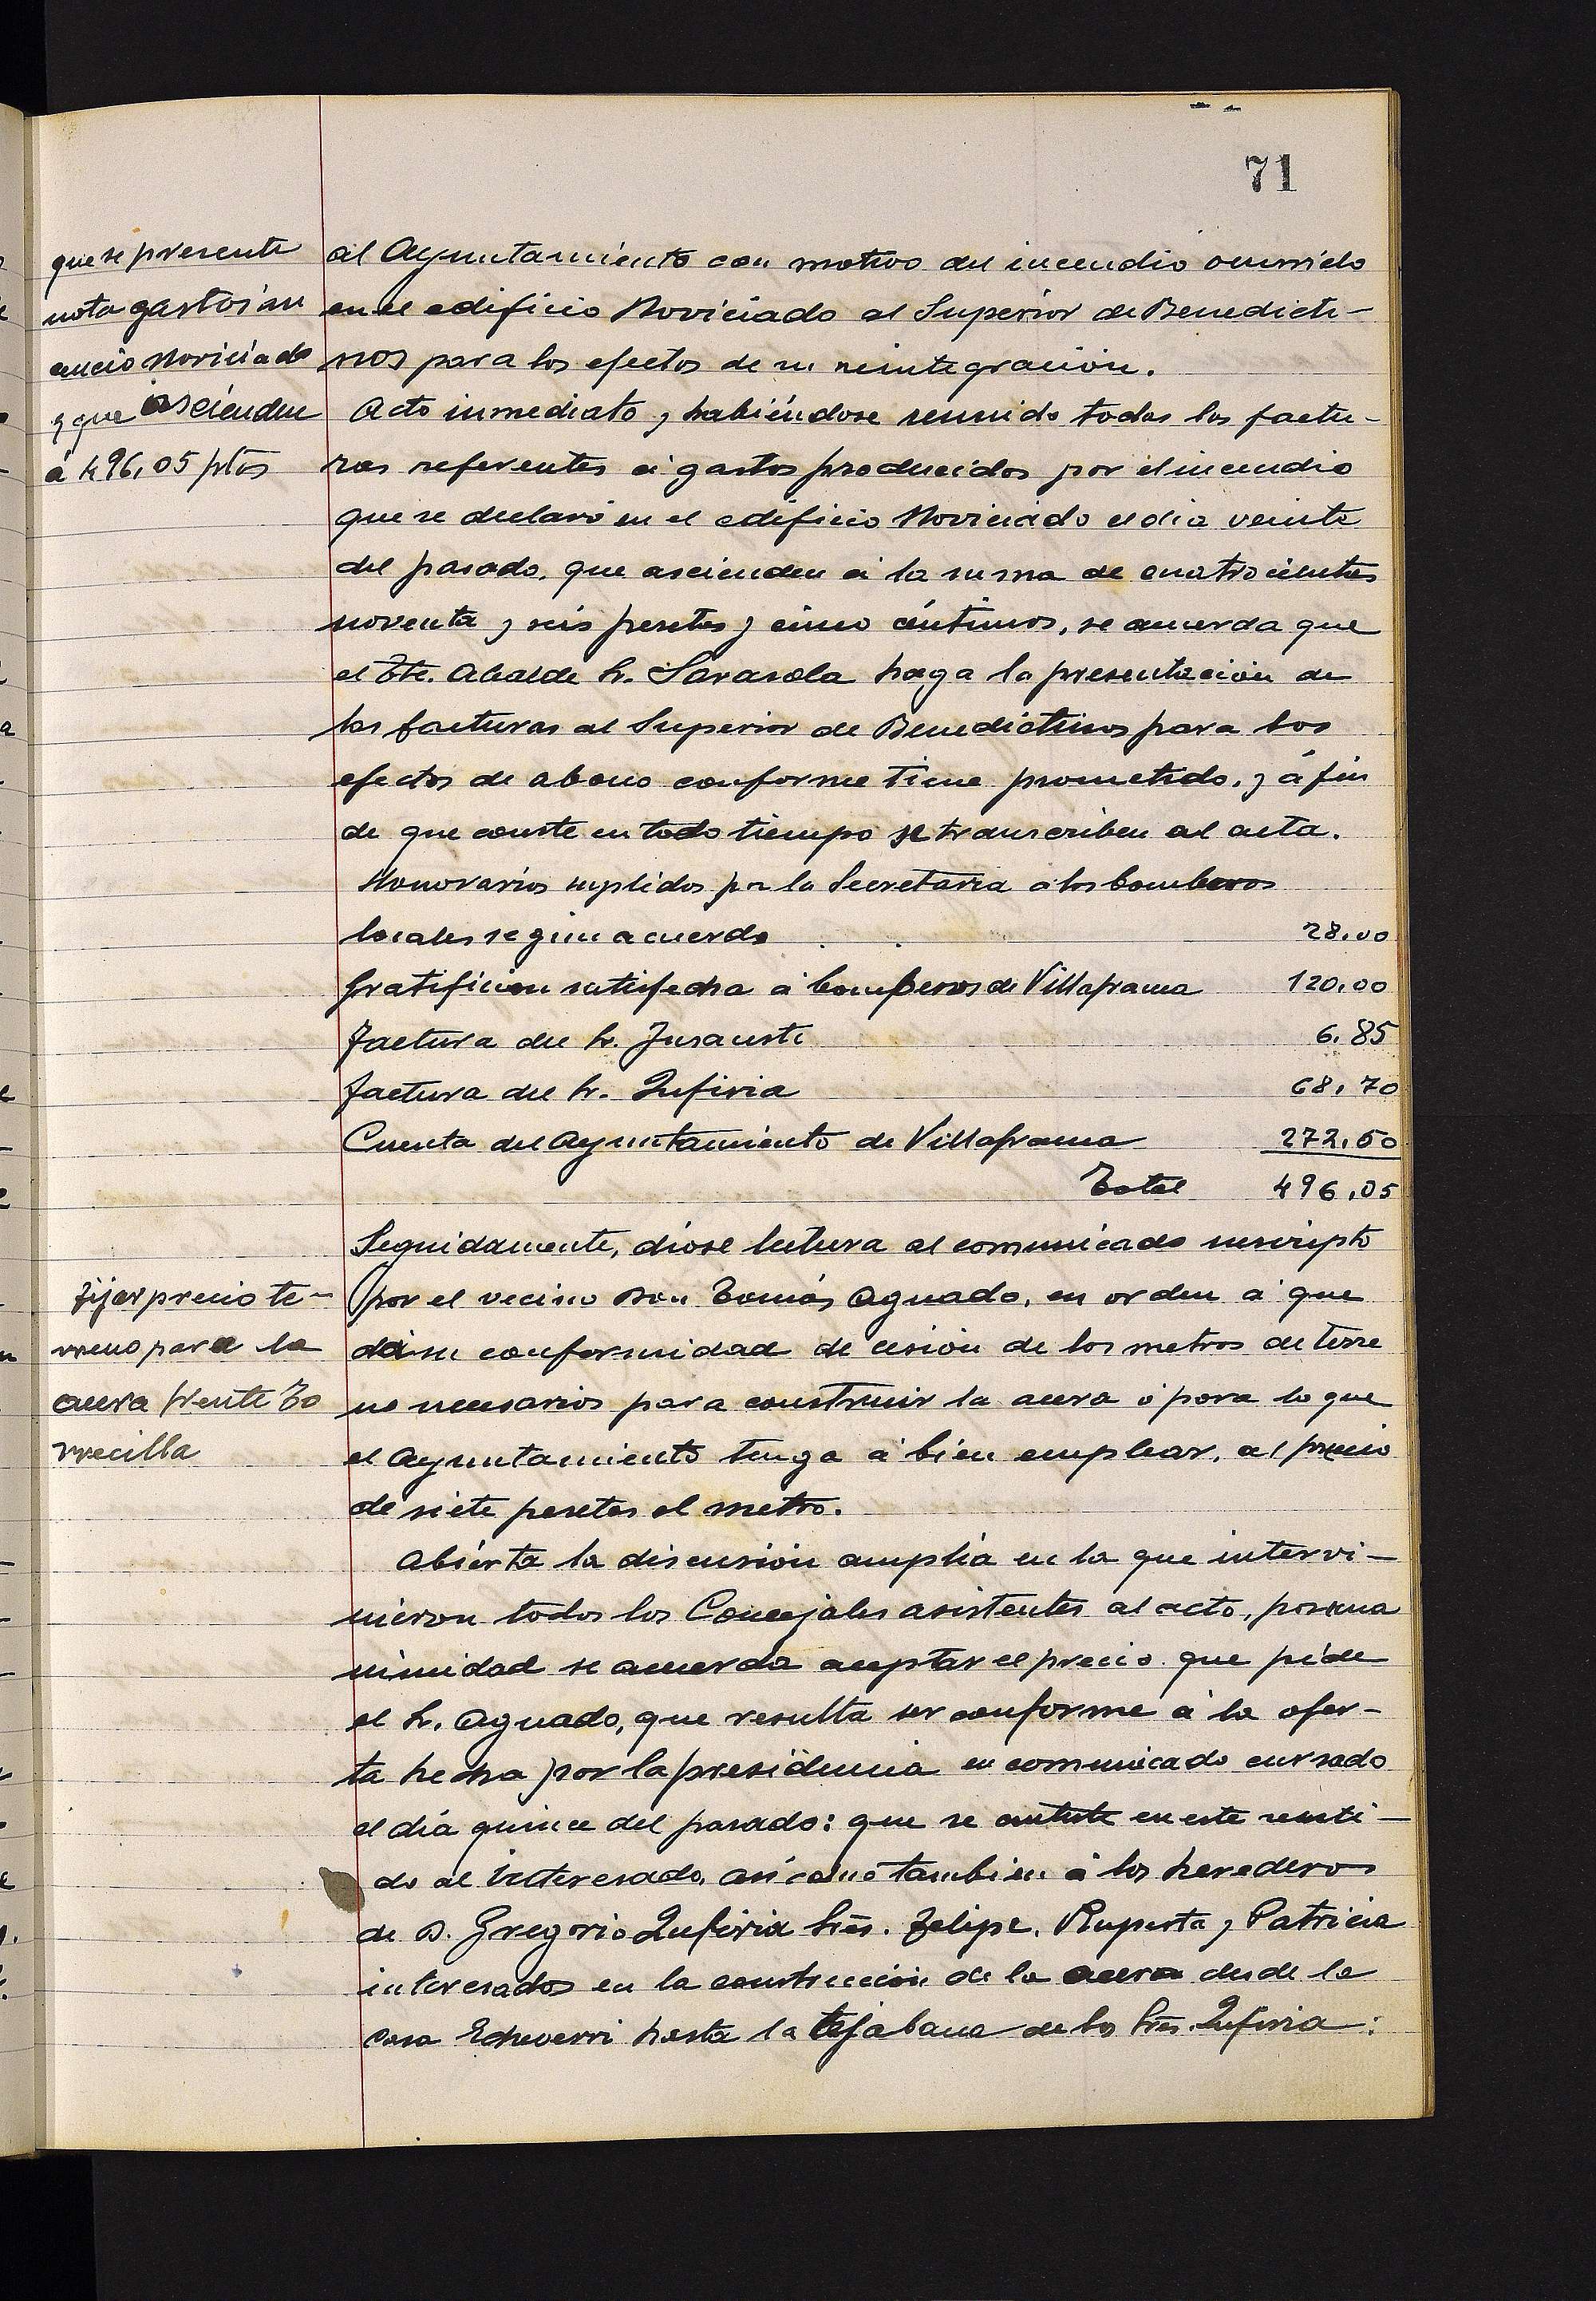 71
que se presente
nota gastos in
cencio Noviciado
y que ascienden
á 496,05 ptas
al Ayuntamiento con motivo del incendio ocurrido
en el edificio Noviciado al Superior de Benedicti-
nos para los efectos de su reintegración.
Acto inmediato y habiéndose reunido todas las factu-
ras referentes á gastos producidos por el incendio
que se declaró en el edificio Noviciado el dia veinte
del pasado, que ascienden á la suma de cuatrocientas
noventa y seis pesetas y cinco céntimos, se acuerda que
el Tte. Alcalde Sr. Sarasola haga la presentación de
las facturas al Superior de Benedictinos para los
efectos de abono conforme tiene prometido, y á fin
de que conste en todo tiempo se transcriben al acta.
Honorarios suplidos por la Secretaria a los bomberos
locales según acuerdo . . 28,00
Gratificion satisfecha á bomberos de Villafranca 120,00
Factura del Sr. Insausti 6,85
Factura del Sr. Zufiria 68,70
Cuenta del Ayuntamiento de Villafranca 272,50
Total 496,05
Fijar precio te-
rreno para la
acera frente To
rrecilla
Seguidamente, dióse lectura al comunicado suscripto
por el vecino Don Tomás Aguado, en orden á que
dá su conformidad de cesión de los metros de terre
no necesarios para construir la acera ó para lo que
el Ayuntamiento tenga á bien emplear, al precio
de siete pesetas el metro.
Abierta la discusión amplia en la que intervi-
nieron todos los Concejales asistentes al acto, por una
nimidad se acuerda aceptar el precio que pide
el Sr. Aguado, que resulta ser conforme á la ofer-
ta hecha por la presidencia en comunicado cursado
el día quince del pasado: que se conteste en este senti-
do al interesado, así como tambien á los herederos
de D. Gregorio Zufiria Srēs. Felipe, Ruperta y Patricia
interesados en la construcción de la acera desde la
casa Echeverri hasta la tejabana de los Srēs. Zufiria: